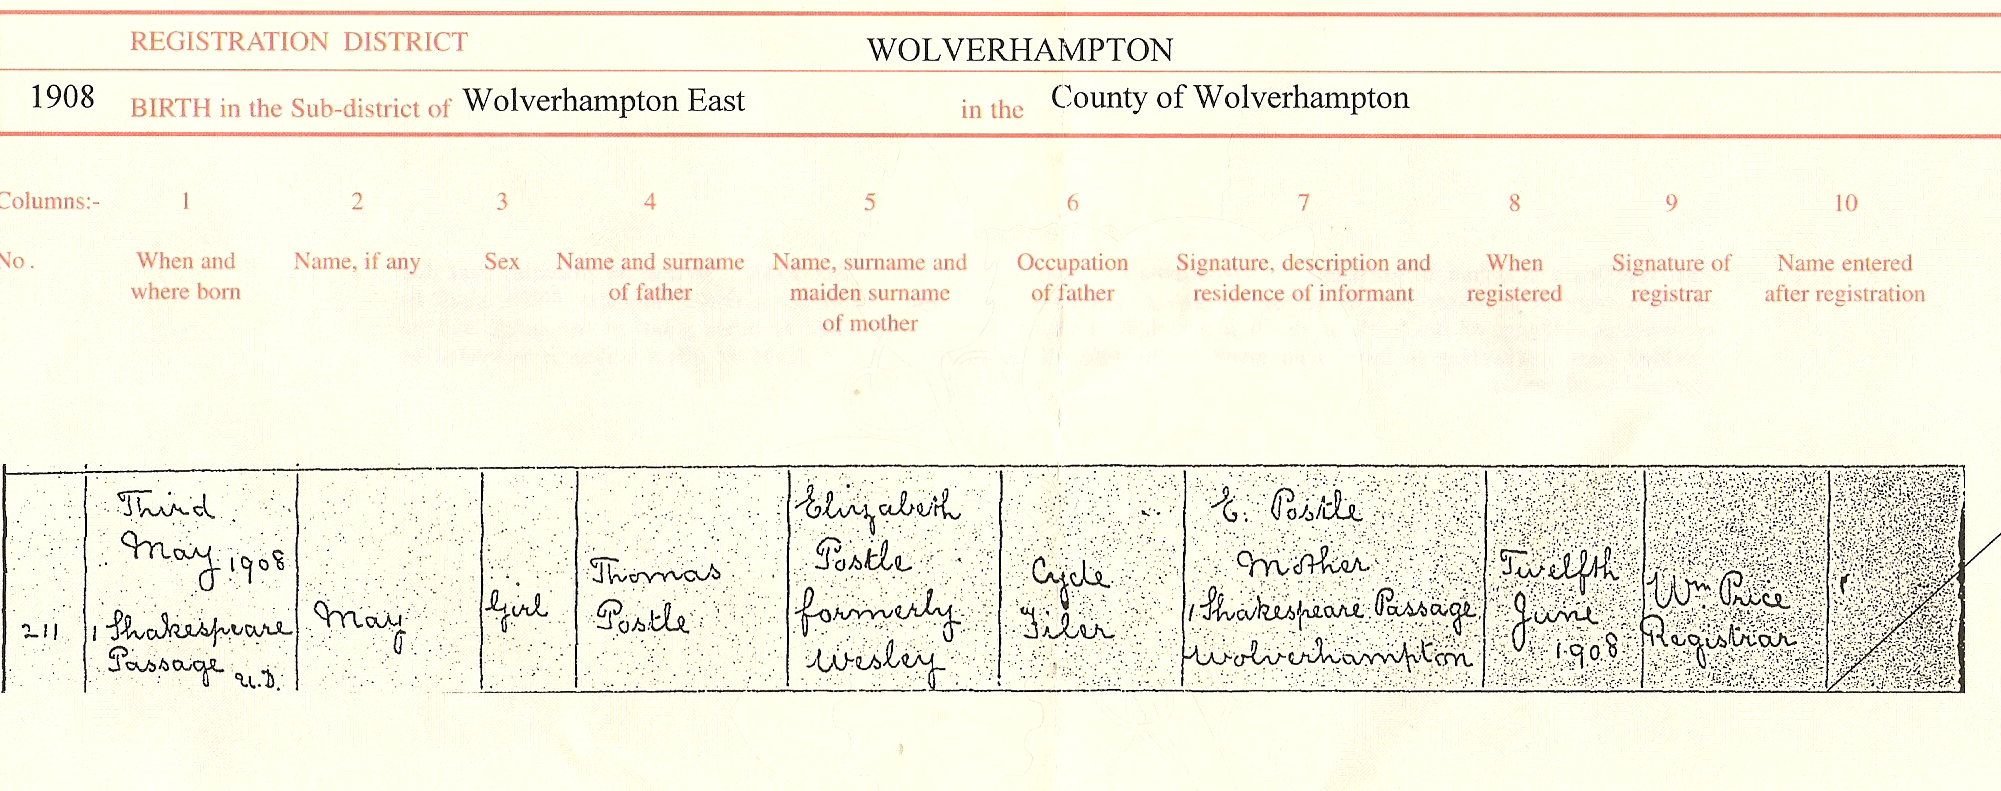 REGISTRATION DISTRICT WOLVERHAMPTON
1908 BIRTH in the Sub-district of Wolverhampton East in the County of Wolverhampton
Columns:- 1 2 3 4 5 6 7 8 9 10
No. When and where born Name, if any Sex Name and surname of father Name, surname and maiden surname of mother Occupation of father Signature, description and residence of informant When registered Signature of registrar Name entered after registration
211
Third
May 1908
1 Shakespeare
Passage U.D.
May
Girl
Thomas
Postle
Elizabeth
Postle
formerly
Wesley
Cycle
Filer
E. Postle
Mother
1 Shakespeare Passage
Wolverhampton
Twelfth
June
1908
Wm Price
Registrar